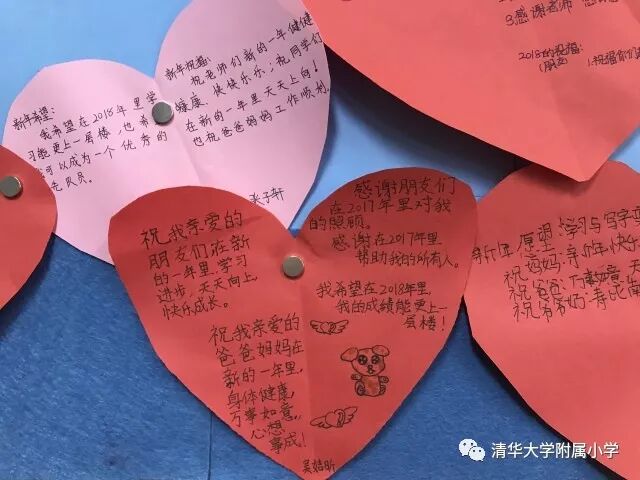 新年希望:
我希望在2018年里学
习能更上一层楼,也希
可以成为一个优秀的
队员。
新年祝福:
祝老师们新的一年健健
康康、快快乐乐,祝同学们
在新的一年里天天向上!
也祝爸爸妈妈工作顺利。
张子轩
3.感谢老师
2018的祝福:
(朋友
1.祝福你们
祝我亲爱的
朋友们在新
的一年里,学习
进步,天天向上
快乐成长。
祝我亲爱的
爸爸妈妈在
新的一年里,
身体健康,
万事如意,
心想
事成!
感谢朋友们
在2017年里对我
的照顾。
感谢在2017年里
帮助我的所有人。
我希望在2018年里
我的成绩能更上一
层楼!
学习与写字
祝妈妈:新年快乐
祝爸爸:万事如意
清华大学附属小学